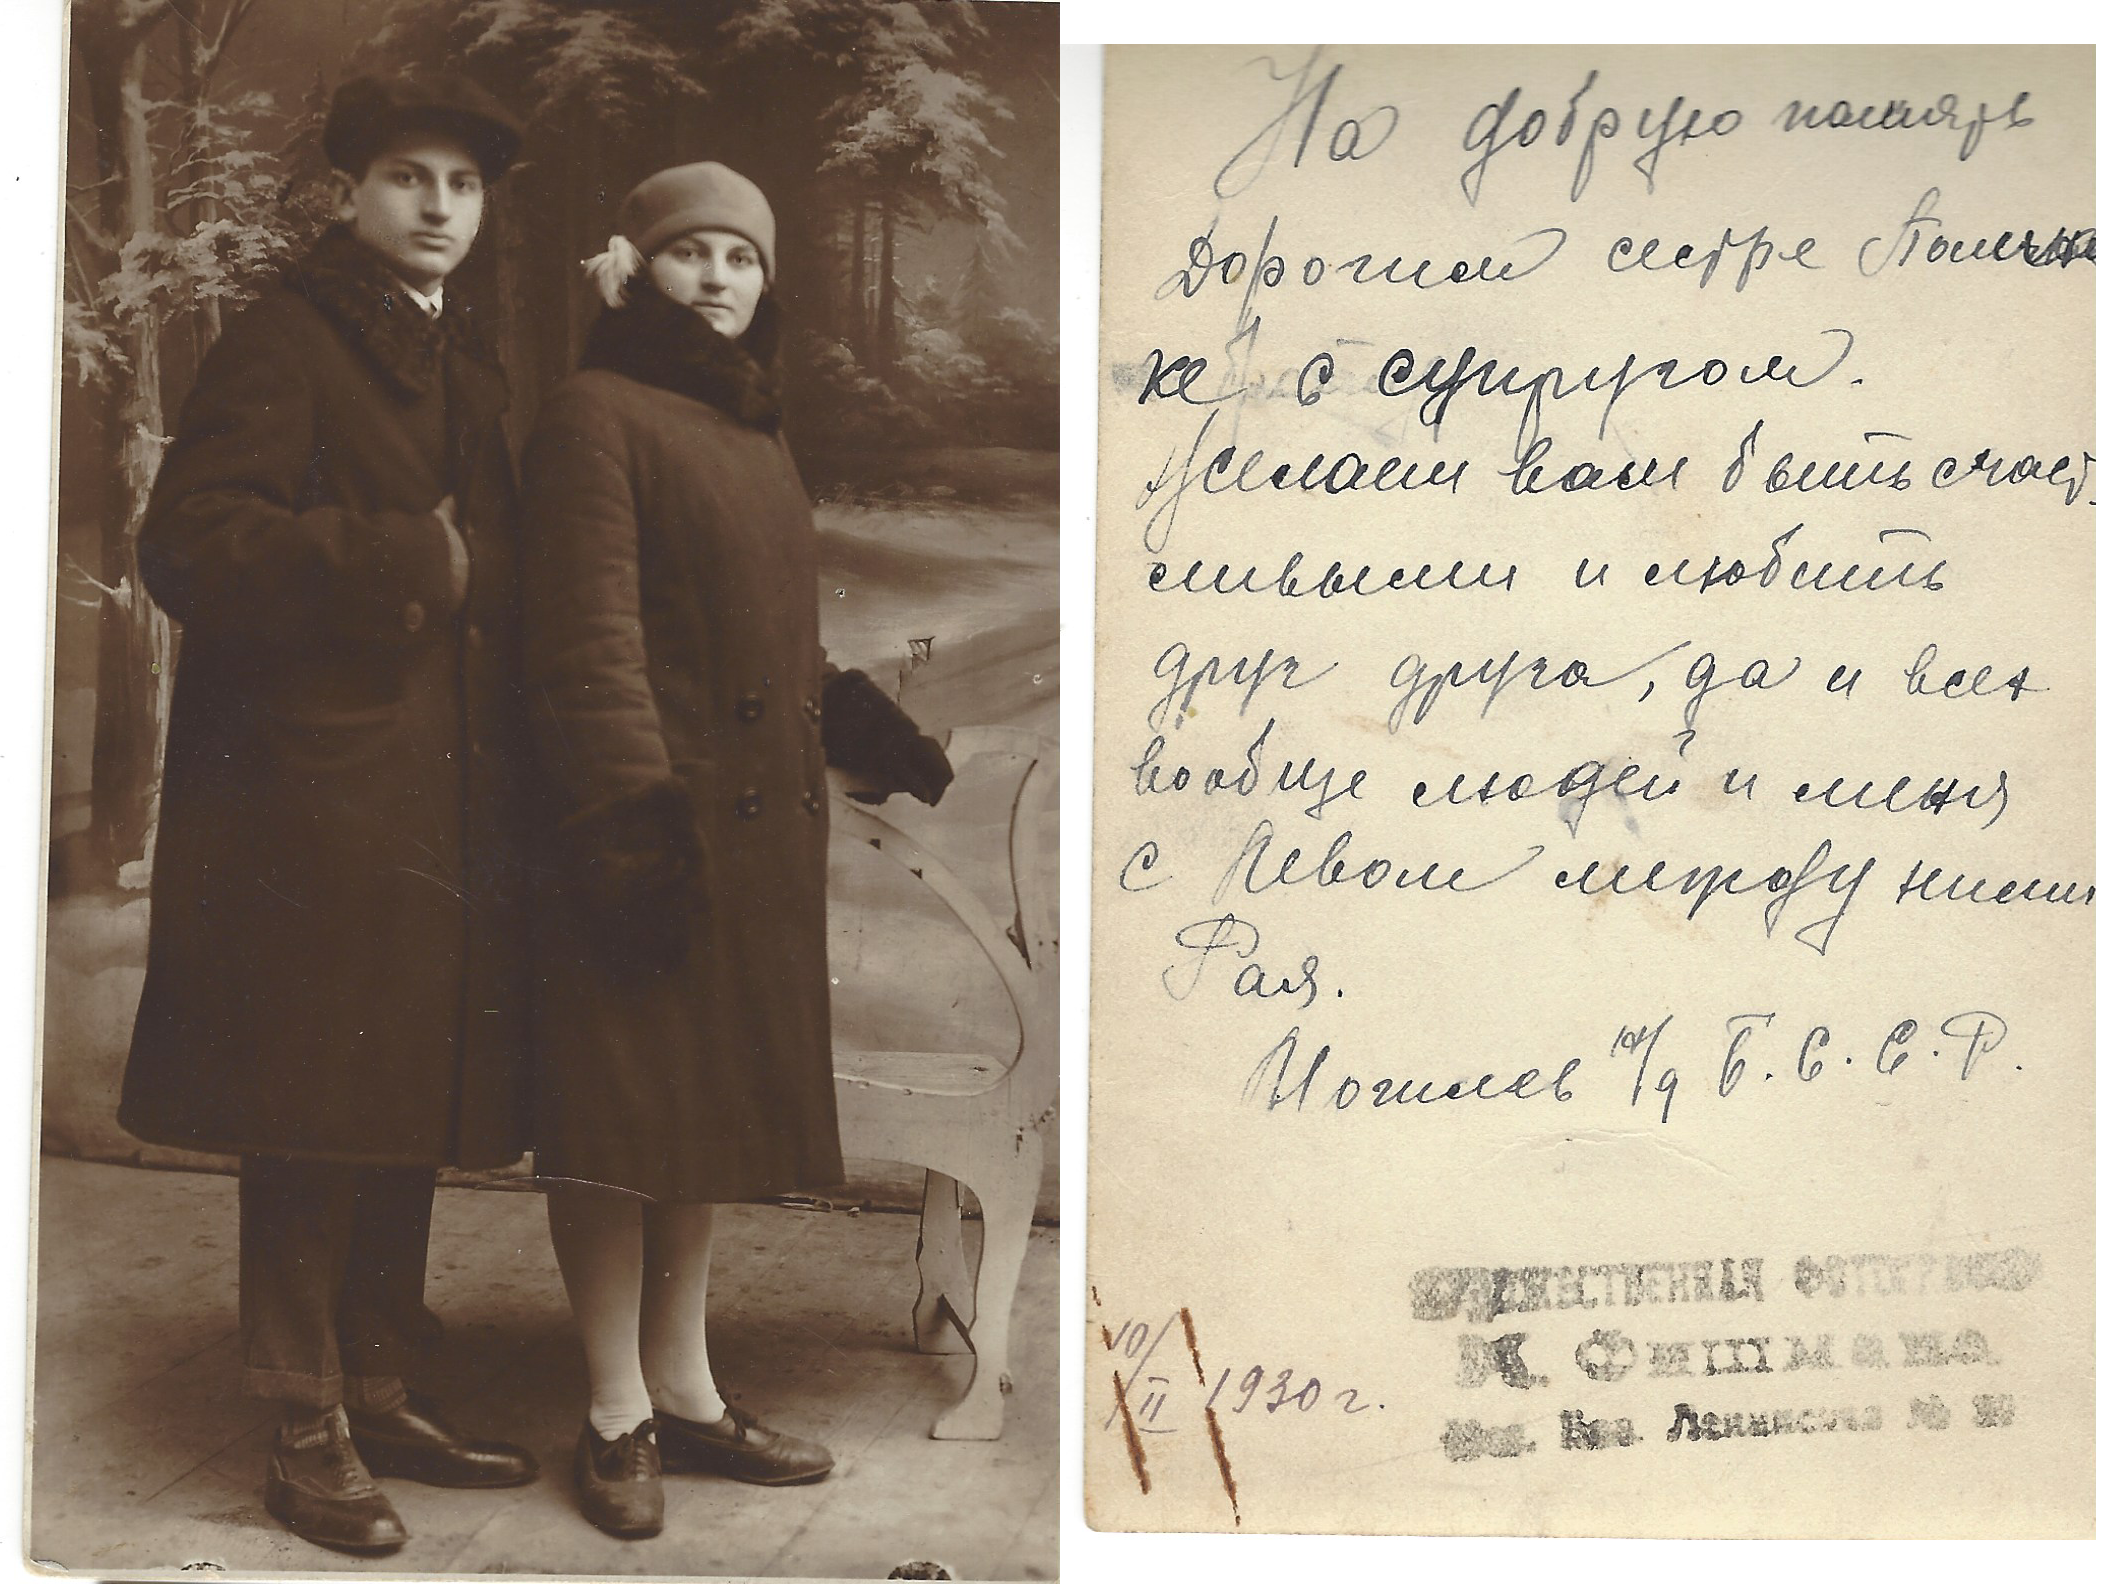 На добрую память
Дорогой сестре Полино
ке с супругом.
Желаем вам быть счаст
ливыми и любить
друг друга, да и всех
вообще людей и меня
с Левом между ними
Рая.
Могилев н/д Б.С.С.Р.
ХУДОЖЕСТВЕННАЯ ФОТОГРАФИЯ
М. Фишмана
Ленинская №
10/II 1930 г.